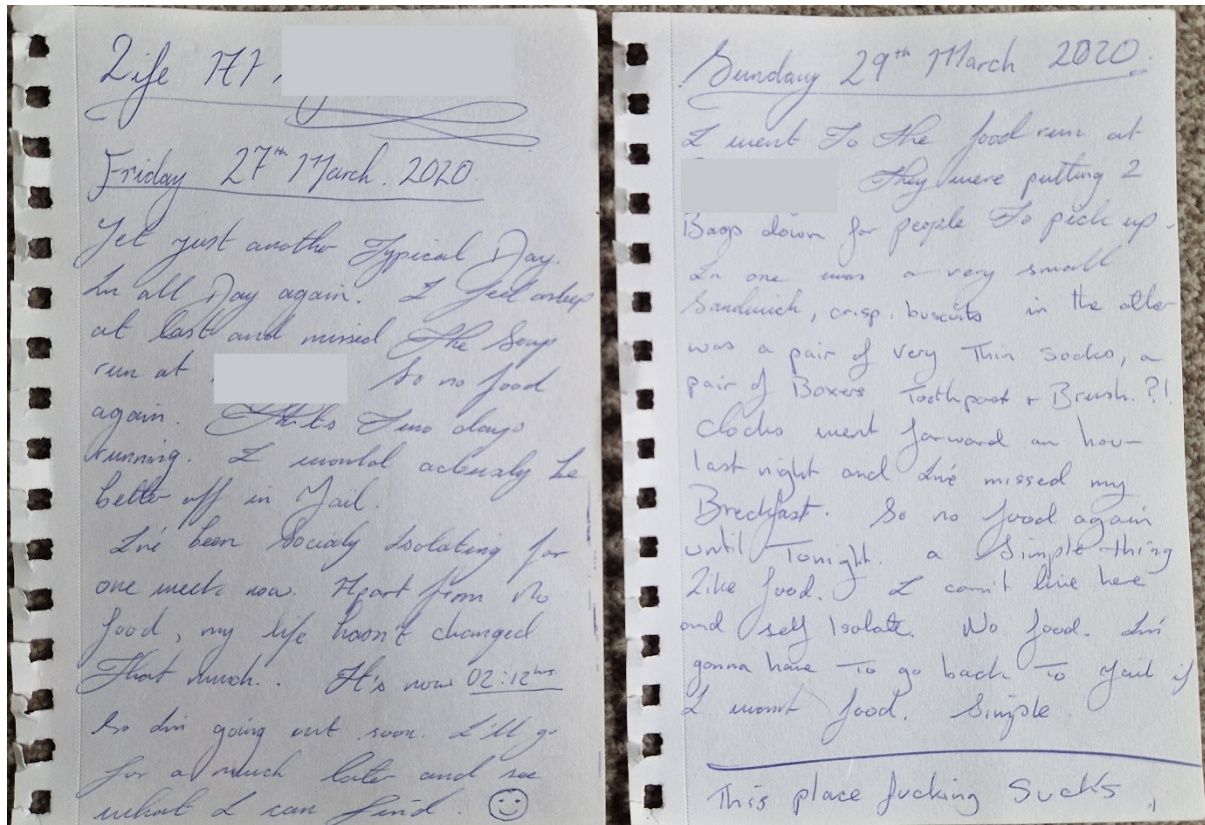 Life At
Friday 27th March. 2020.
Yet just another Typical Day.
In all Day again. I feel asleep
at last and missed The Soup
run at
So no food
again. Thats Two days
running. I would actually be
better off in Jail.
I've been Socialy Isolating for
one week now. Apart from No
food, my life hasn't changed
That much.. It's now 02:12hrs
So Im going out soon. I'll go
for a much later and see
what I can find.
Sunday 29th March 2020.
I went To the food run at
They were putting 2
Bags down for people To pick up.
In one was a very small
Sandwich, crisp, buscuits in the other
was a pair of very Thin Socks, a
pair of Boxers Toothpast + Brush.?!
Clocks went forward an hour
last night and I've missed my
Breckfast. So no food again
until Tonight. a Simple thing
Like food. I can't live here
and self Isolate. No food. Im
gonna have To go back To Jail if
I want food. Simple
This place fucking Sucks,